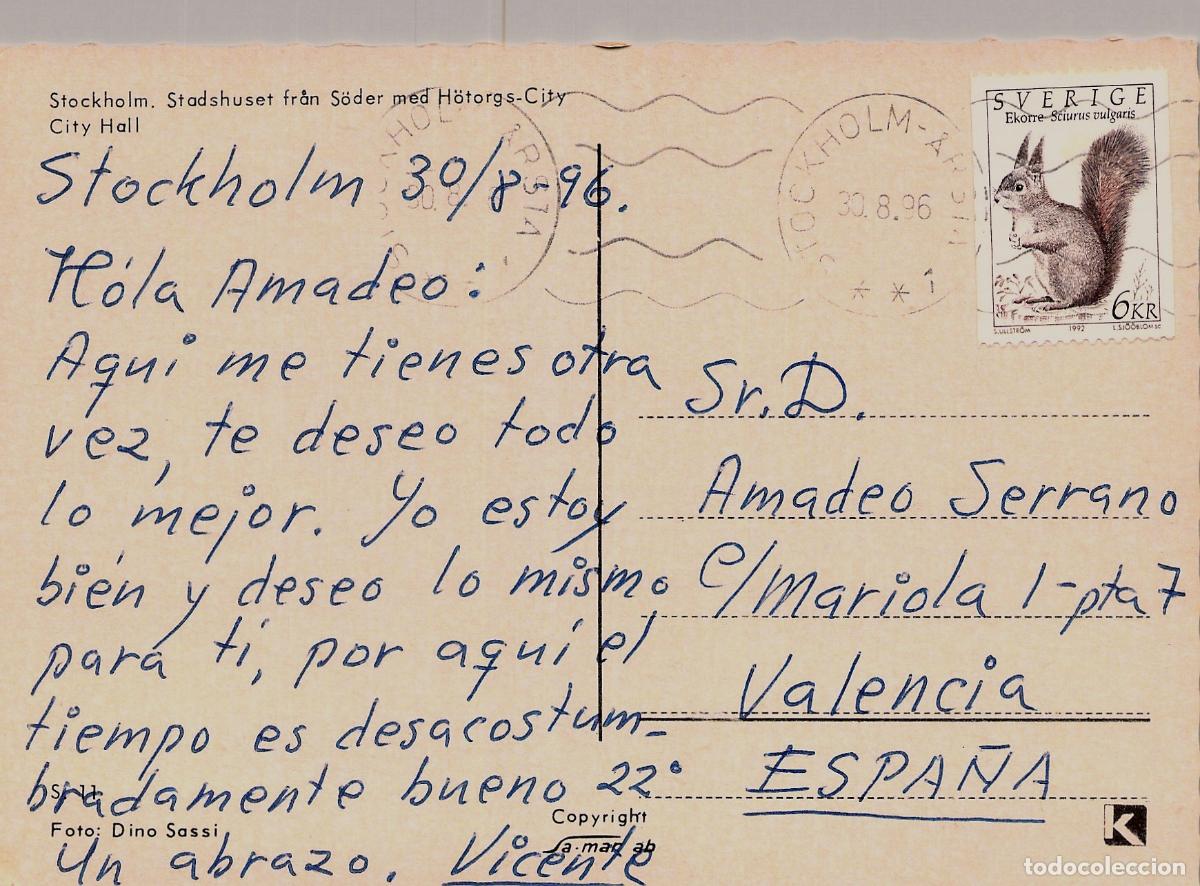 Stockholm. Stadshuset från Söder med Hötorgs-City
City Hall
Stockholm 30/8 96.
Hóla Amadeo:
Aqui me tienes otra
vez, te deseo todo
lo mejor. Yo estoy
bién y deseo lo mismo
para ti, por aquí el
tiempo es desacostum_
bradamente bueno 22°
Un abrazo. Vicente
Foto: Dino Sassi
Copyright
Sa-mar ab
STOCKHOLM-ÅRSTA
30.8.96
STOCKHOLM-ÅRSTA
30.8.96
* * 1
SVERIGE
Ekorre Sciurus vulgaris
6KR
S.ULLSTRÖM 1992 L.SJÖÖBLOM SC
Sr. D.
Amadeo Serrano
C/Mariola 1-pta 7
Valencia
ESPAÑA
K
todocoleccion